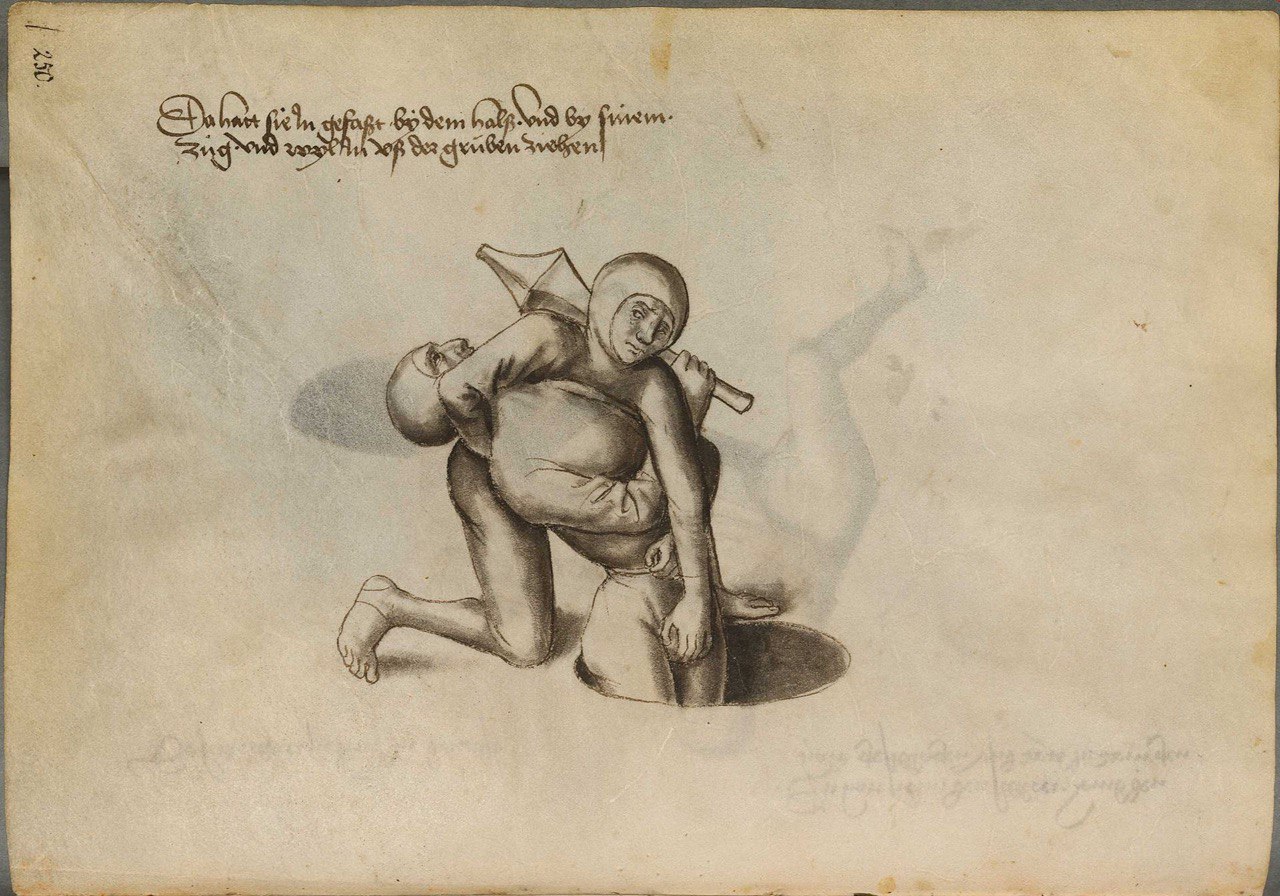 250.
Da hatt sie In gefasst by dem halß · Vnd by sinem ·
Züg · vnd wyl In vß der grůben ziehen